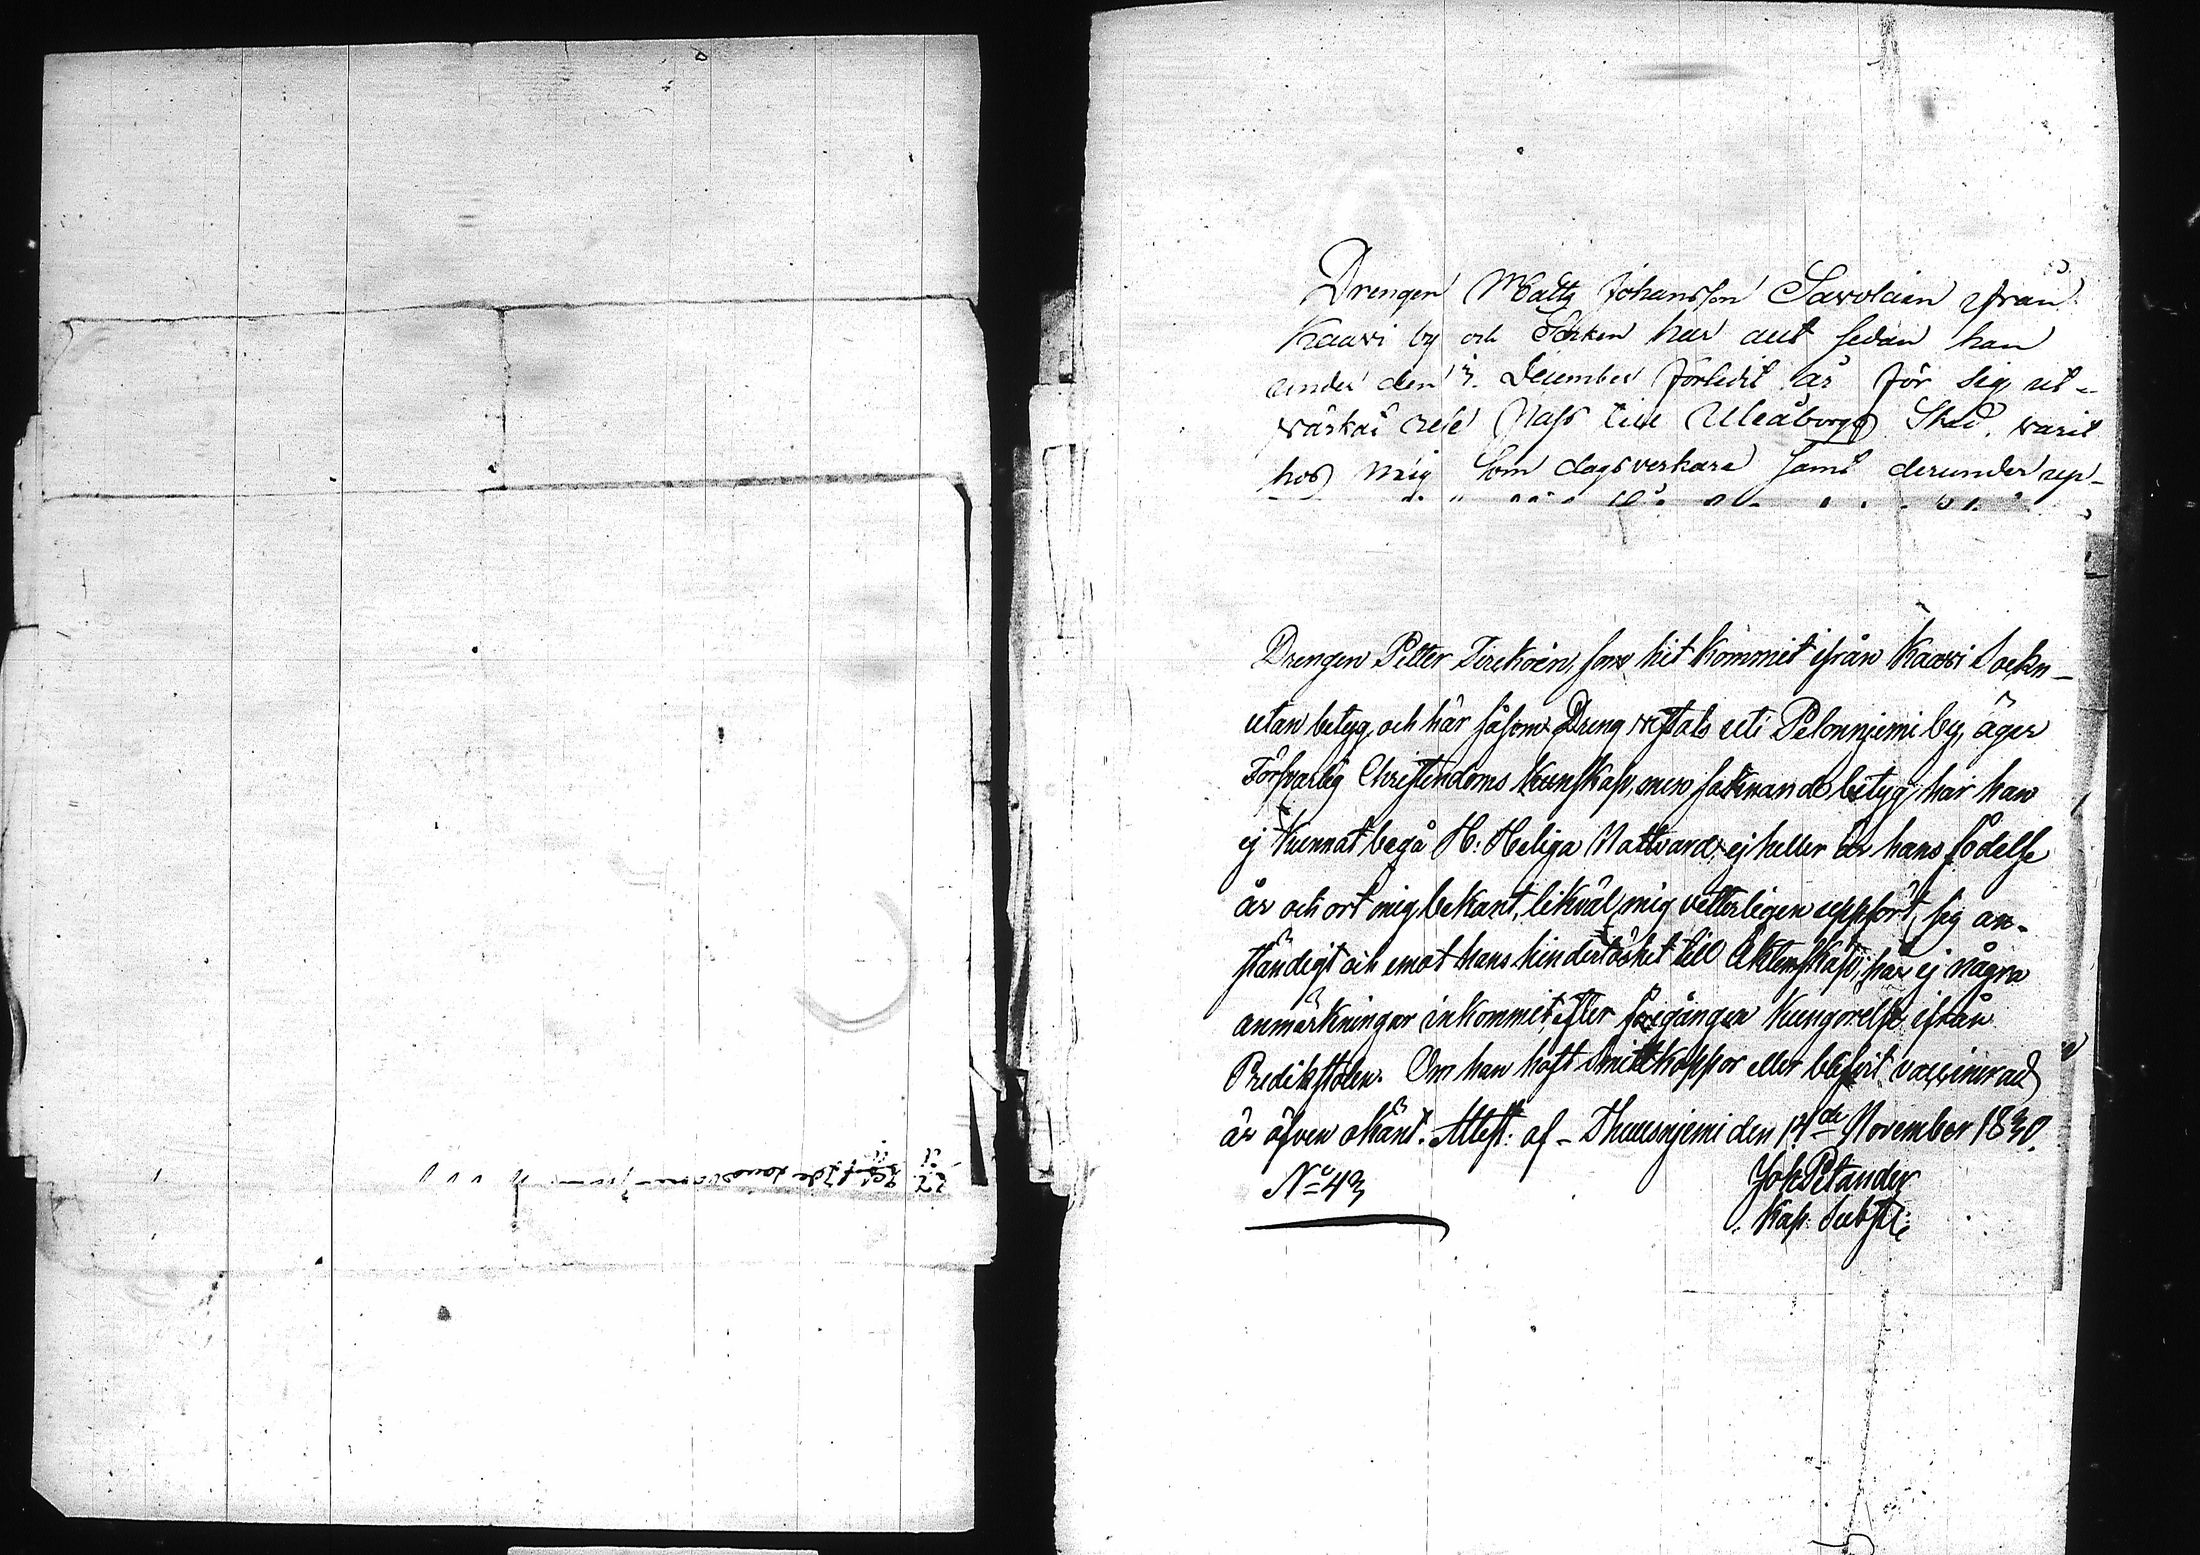 Drengen Matts Johansson Savolain från
Kaavi by och Socken har allt sedan han
under den 3. December förledit år för sig ut-
värkat Pass till Uleåborgs Stad, varit
hos mig som dagsverkare samt derunder upp-
Drengen Petter Tirckoin, som hit kommit ifrån Kaavi Sockn
utan betyg, och här såsom Dreng vistats uti Pelonnjemi by, äger
Försvarlig Christendoms Kunskap, men saknande betyg, har han
ej kunnat begå H: Heliga Nattvard, ej heller är hans födelse
år och ort mig bekant, likväl mig vetterligen uppfört sig an-
ständigt och emot hans hinderlöshet till Äktenskap, har ej några
anmärkningar inkommit efter föregången kungörelse ifrån
Predikstolen. Om han haft Smittkoppor eller blifvit vaccinerad
är äfven okänt. Attest: af Thuusnjemi den 14de November 1830.
No 43
Joh Petander
Kap: Subst: